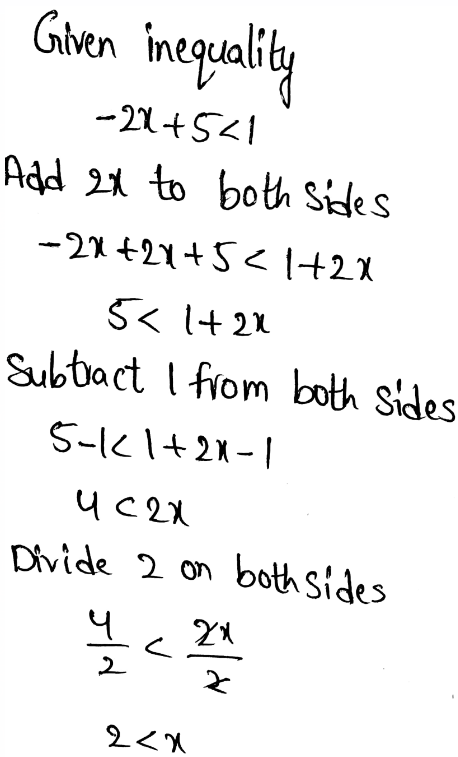 Given inequality
-2x+5<1
Add 2x to both sides
-2x+2x+5<1+2x
5<1+2x
Subtract 1 from both sides
5-1<1+2x-1
4<2x
Divide 2 on both sides
4/2 < 2x/2
2<x